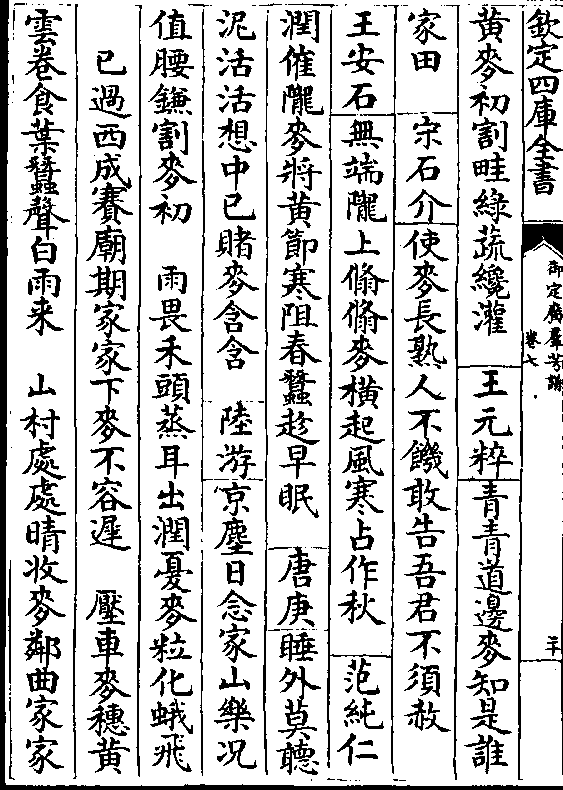 欽定四庫全書
御定廣羣芳譜
卷七
二十
黃麥初割畦綠蔬纔灌　王元粹青青道邊麥知是誰
家田　宋石介使麥長熟人不饑敢告吾君不須赦
王安石無端隴上翛翛麥橫起風寒占作秋　范純仁
潤催隴麥將黃節寒阻春蠶趁早眠　唐庚睡外莫聽
泥活活想中已賭麥含含　陸游京塵日念家山樂况
值腰鎌割麥初　雨畏禾頭蒸耳出潤憂麥粒化蛾飛
已過西成賽廟期家家下麥不容遲　壓車麥穗黃
雲卷食葉蠶聲白雨来　山村處處晴收麥鄰曲家家